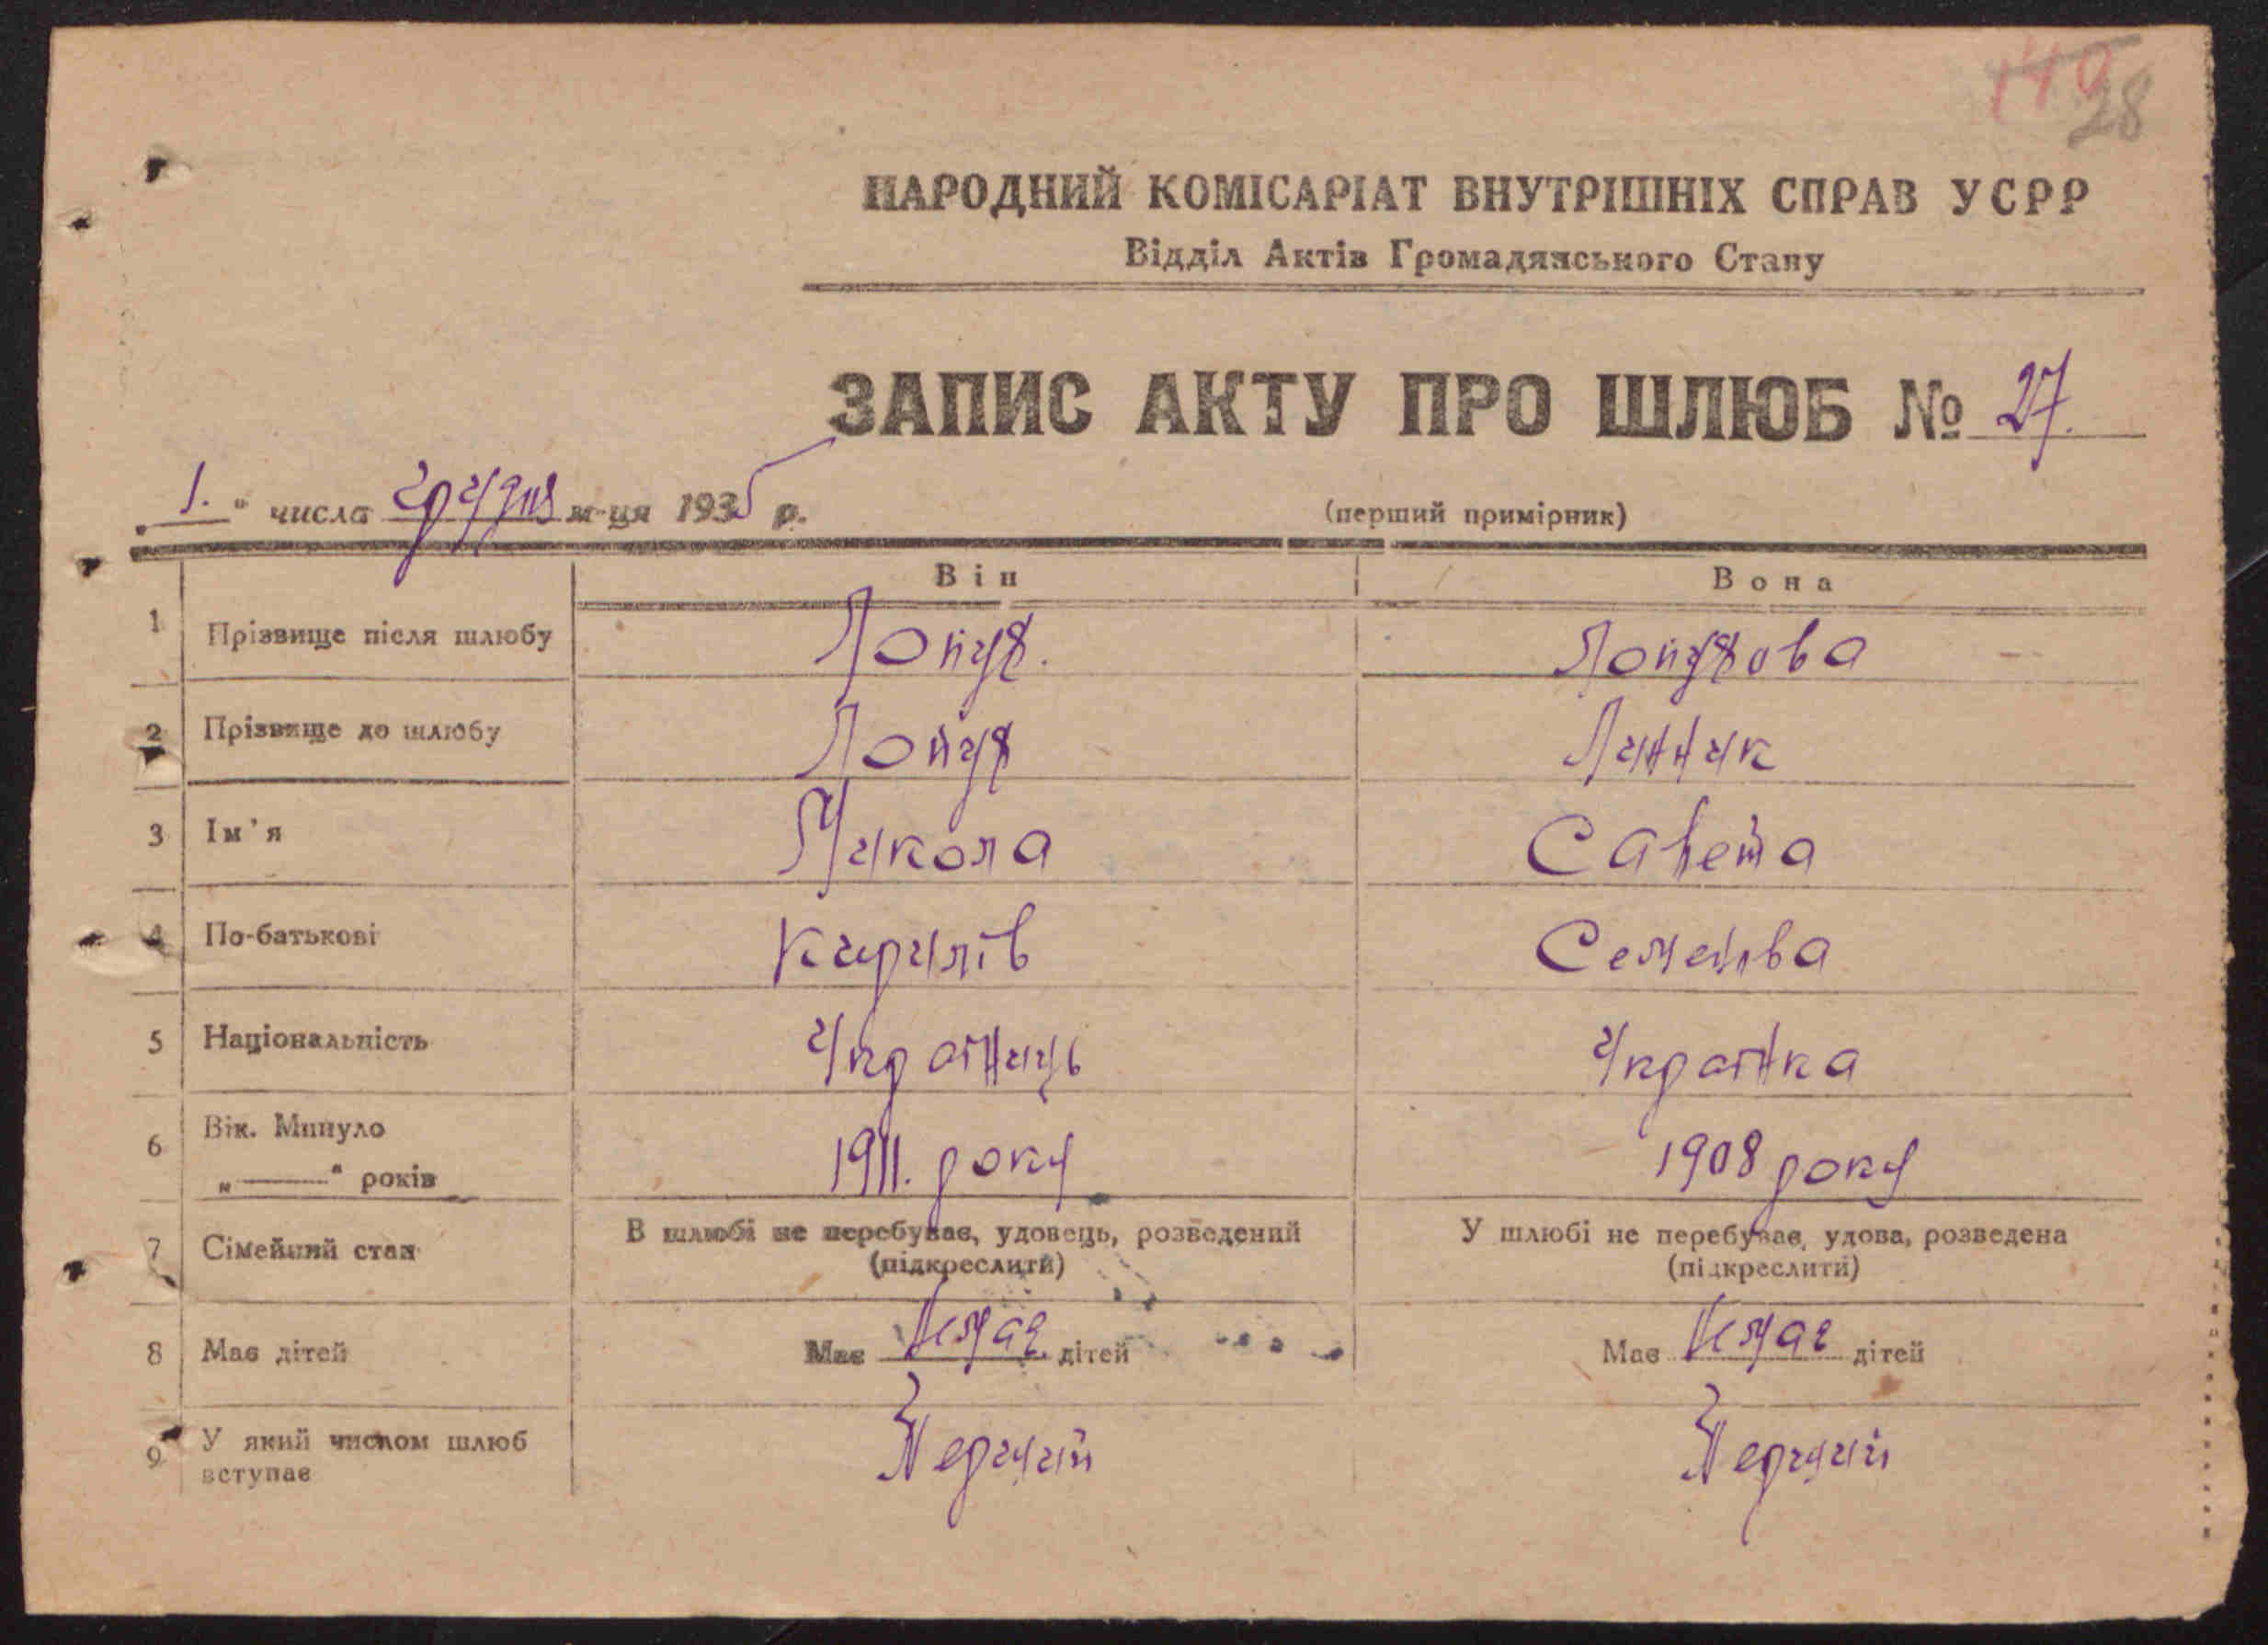 140
28
НАРОДНИЙ КОМІСАРІАТ ВНУТРІШНІХ СПРАВ УСРР
Відділ Актів Громадянського Стану
ЗАПИС АКТУ ПРО ШЛЮБ № 27.
„ 1. " числа грудня м-ця 1935 р.
(перший примірник)
Він Вона
1 Прізвище після шлюбу Лопух. Лопухова
2 Прізвище до шлюбу Лопух Линник
3 Ім'я Микола Савета
4 По-батькові Кирилів Семенва
5 Національність Українець Українка
6 Вік. Минуло „ " років 1911. року 1908 року
7 Сімейний стан В шлюбі не перебуває, удовець, розведений (підкреслити) У шлюбі не перебуває, удова, розведена (підкреслити)
8 Має дітей Має Немає дітей Має Немає дітей
9 У який числом шлюб вступає Перший Перший